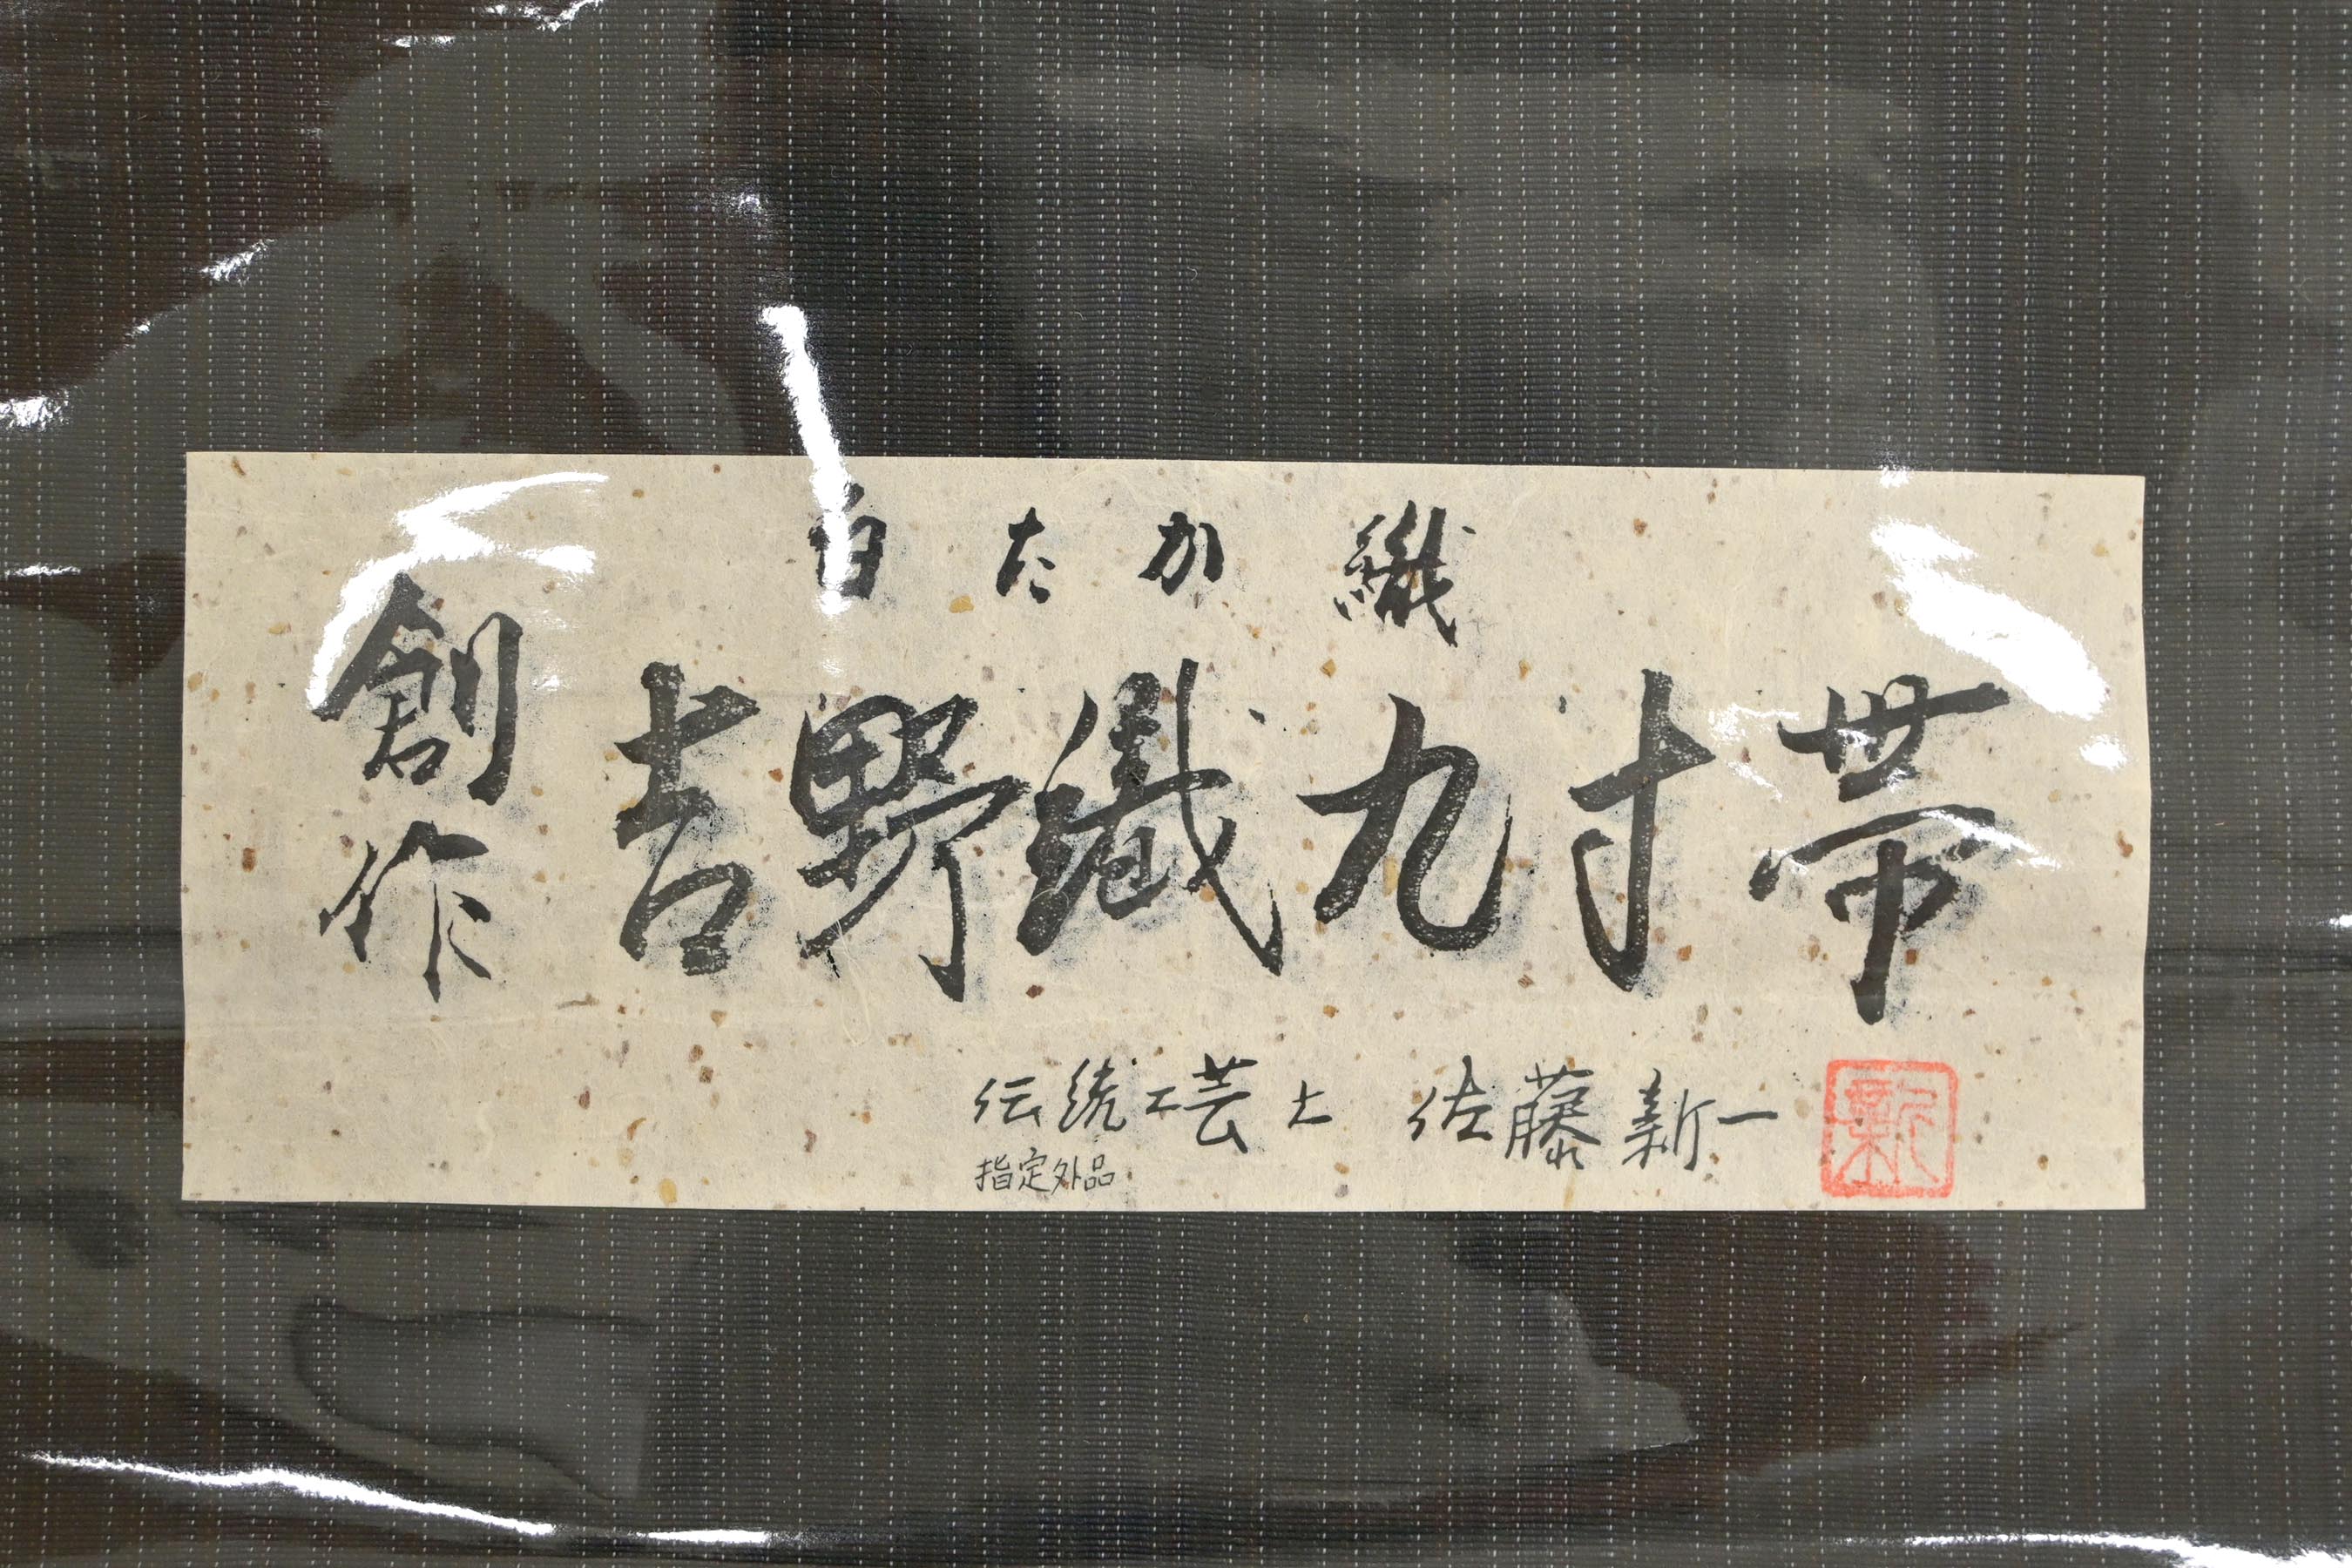 白たか織
創作
吉野織九寸帯
伝統工芸士 佐藤新一
新
指定外品